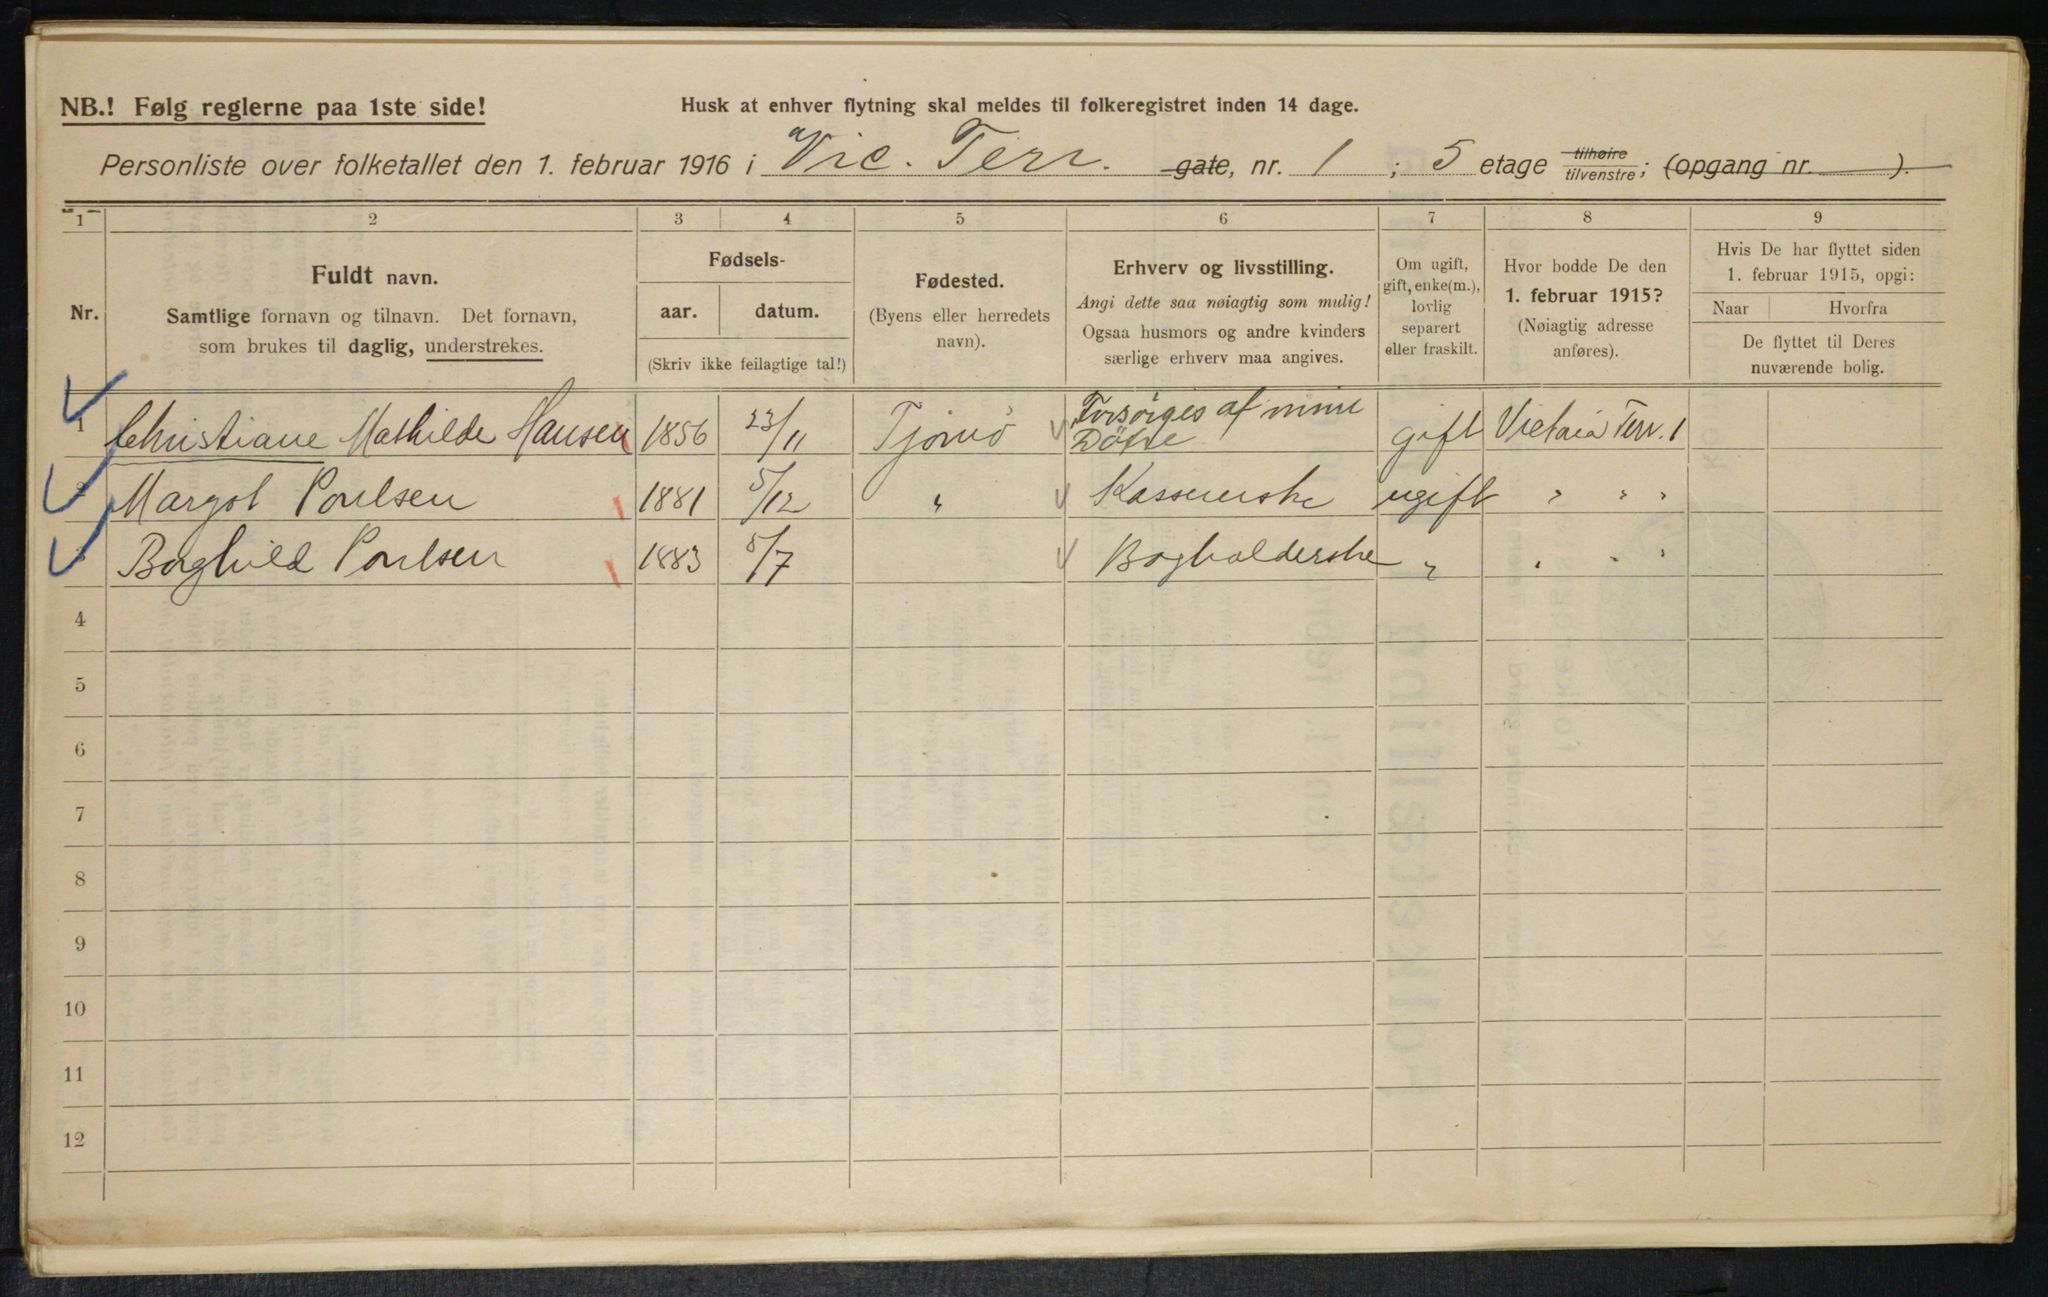 NB.! Følg reglerne paa 1ste side!
Husk at enhver flytning skal meldes til folkeregistret inden 14 dage.
Personliste over folketallet den 1. februar 1916 i Vic. Terr. gate, nr. 1 ; 5 etage tilhøire tilvenstre ; (opgang nr. ).
1 2 3 4 5 6 7 8 9
Nr.
Fuldt navn.
Samtlige fornavn og tilnavn. Det fornavn,
som brukes til daglig, understrekes.
Fødsels-
aar. datum.
(Skriv ikke feilagtige tal!)
Fødested.
(Byens eller herredets
navn).
Erhverv og livsstilling.
Angi dette saa nøiagtig som mulig!
Ogsaa husmors og andre kvinders
særlige erhverv maa angives.
Om ugift,
gift, enke(m.),
lovlig
separert
eller fraskilt.
Hvor bodde De den
1. februar 1915?
(Nøiagtig adresse
anføres).
Hvis De har flyttet siden
1. februar 1915, opgi:
Naar Hvorfra
De flyttet til Deres
nuværende bolig.
1 Christiane Mathilde Hansen 1856 23/11 Tjømö Forsörges af mine Döttre gift Victoria Terr. 1
2 Margot Poulsen 1881 5/12 " Kassererske ugift " " "
Borghild Poulsen 1883 5/7 Bogholderske " " " "
4
5
6
7
8
9
10
11
12